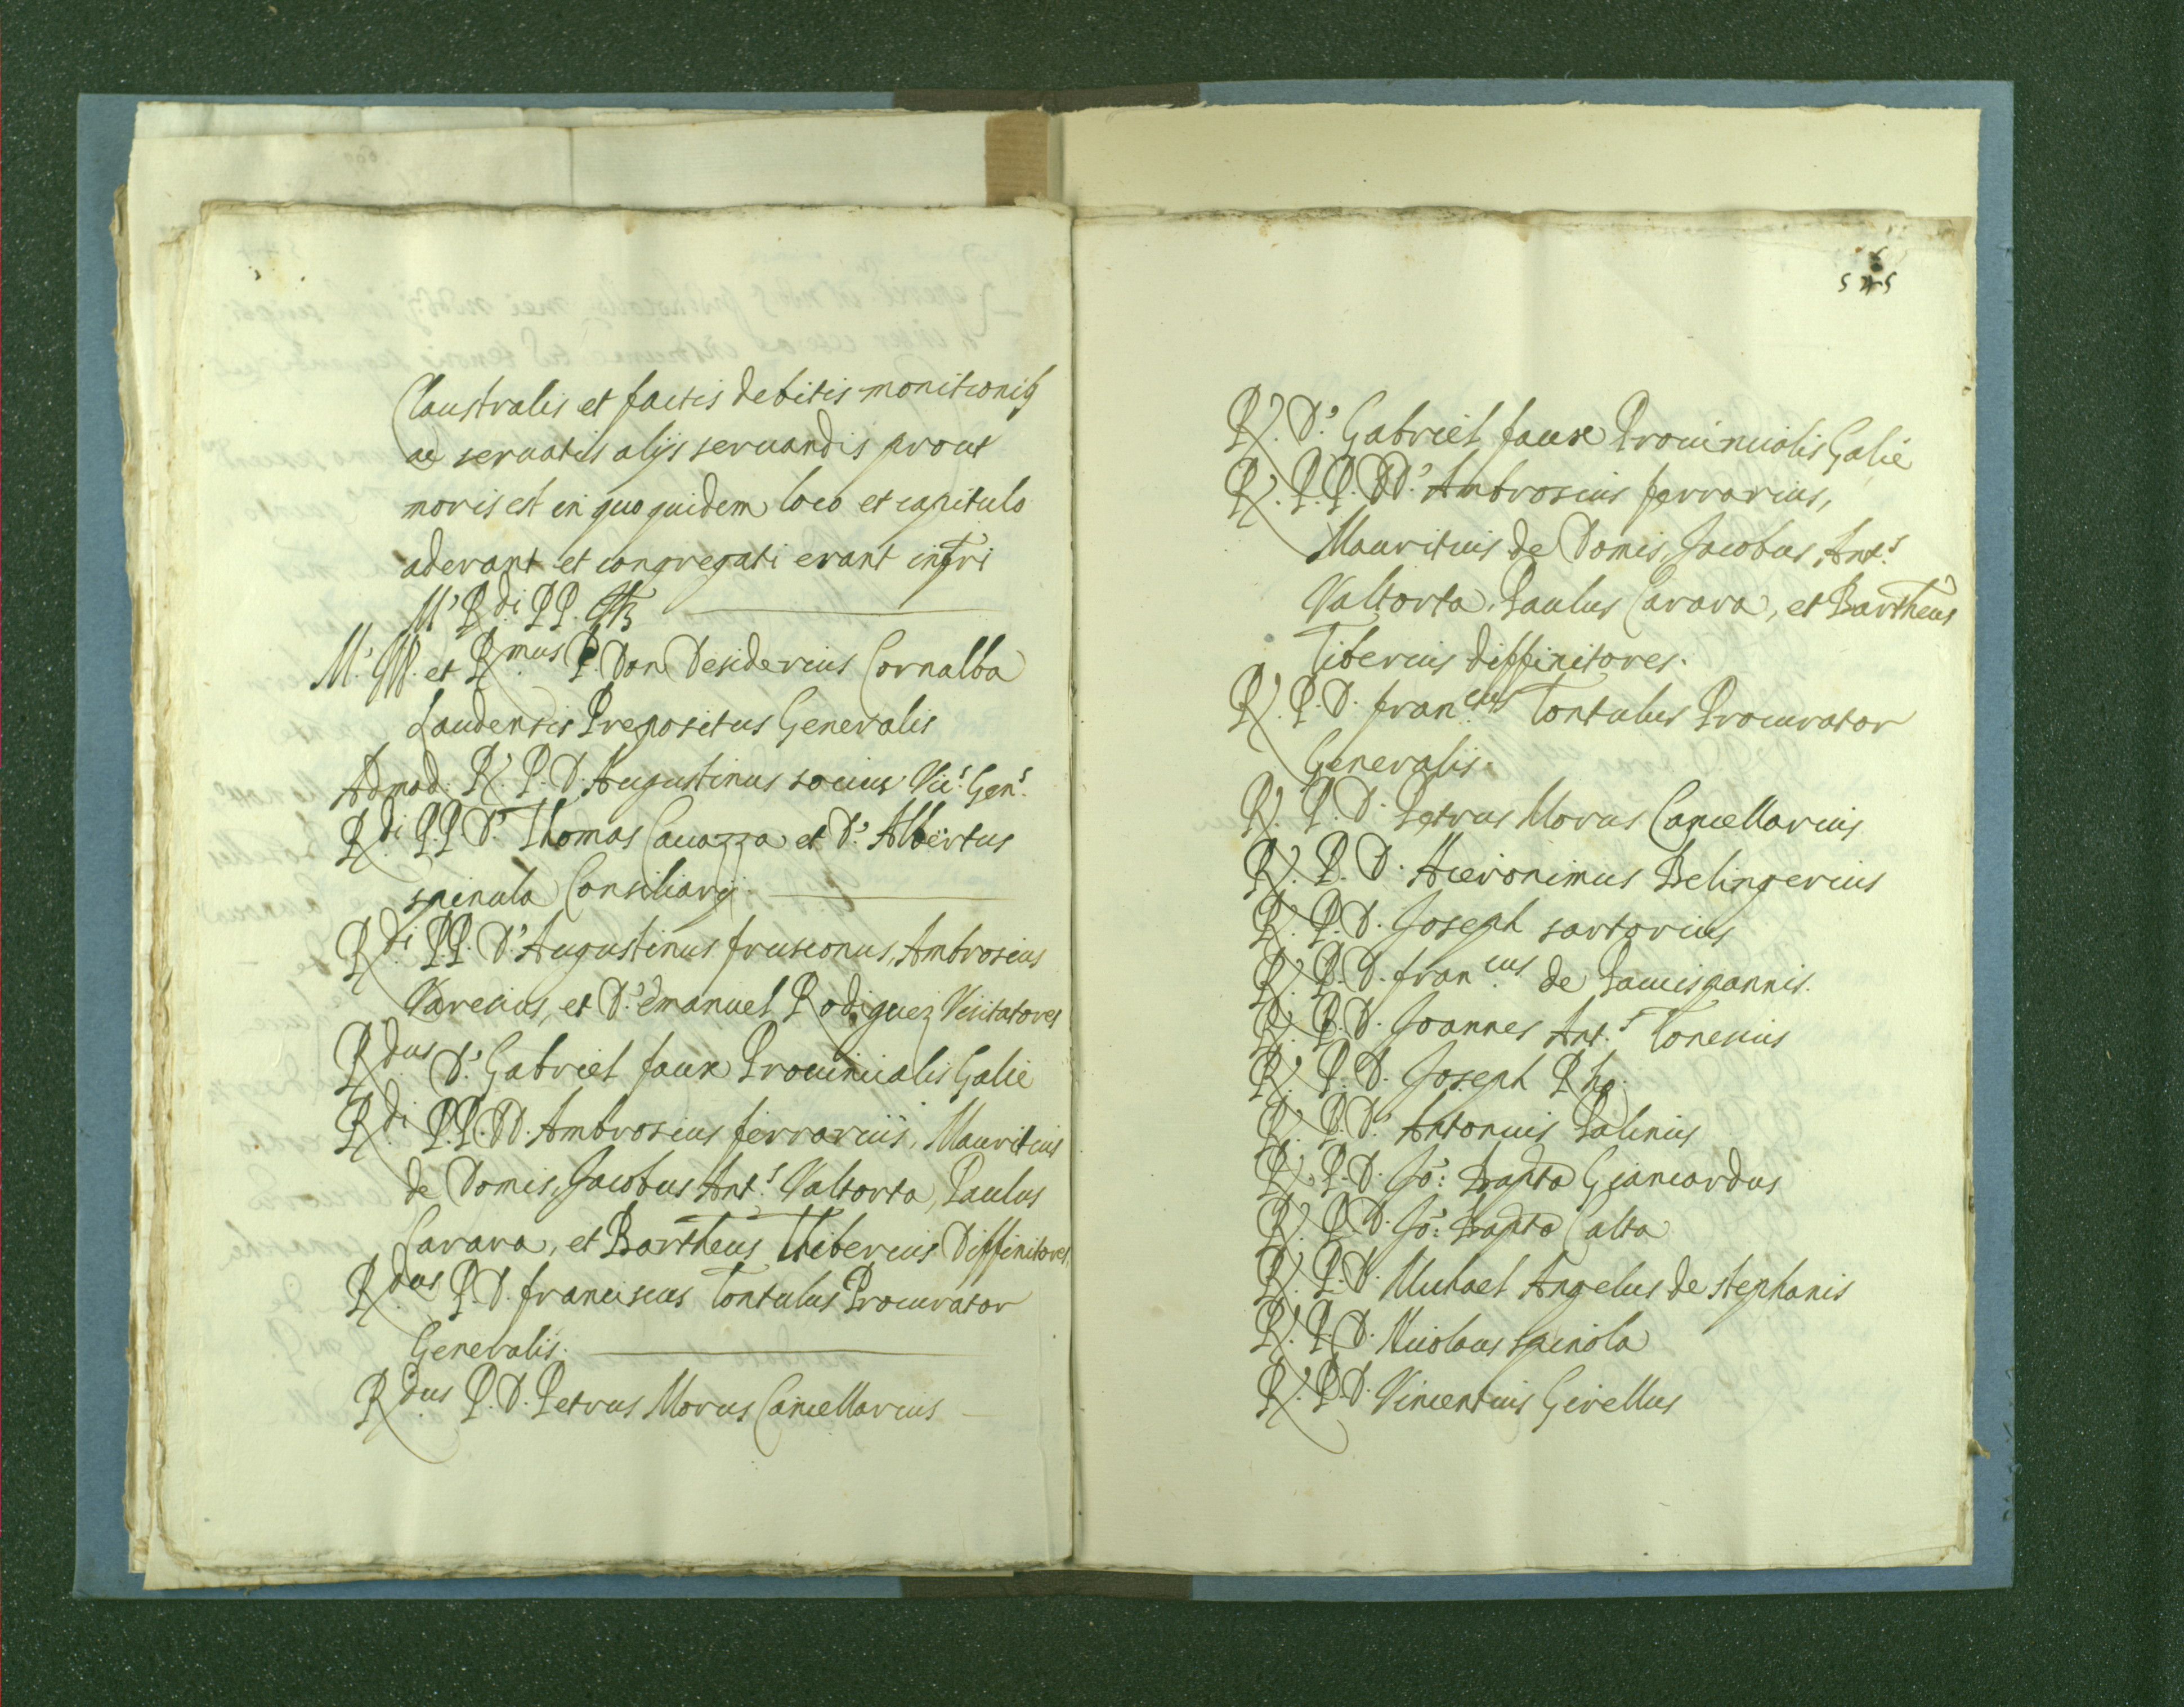 Claustralis et factis debitis monitionib9
ac servatis alijs servandis prout
moris est in quo quidem loco et capitulo
aderant et congregati erant infri
M.' R.di PP.
M.' Ill. et R.mus P. Don Desiderius Cornalba
Laudensis Prepositus Generalis
Admod. R. P. D. Augustinus socius Vic.s Gen.s
R.di P.P. D. Thomas Cavazza et D. Albertus
spinula Consiliarij.
R.di PP. D. Augustinus frusconus, Ambrosius
Varesius, et D. Emanuel Rodiguez Visitatores
R.dus D. Gabriel faux Provincialis Galie
R.di P.P. DD. Ambrosius ferrarius, Mauritius
de Domis, Jacobus Ant.s Valtorta, Paulus
Carara, et Bartheus Tiberius Diffinitores,
R.dus P. D. franciscus Tontulus Procurator
Generalis.
R.dus P. D. Petrus Morus Cancellarius
R. D. Gabriel faux Provincialis Galie
R. P.P. DD. Ambrosius ferrarius,
Mauritius de Domis, Jacobus Ant.s
Valtorta, Paulus Carara, et Bartheus
Tiberius diffinitores.
R. P. D. fran.cus Tontulus Procurator
Generalis.
R. P. D. Petrus Morus Cancellarius
R. P. D. Hieronimus Belingerius
R. P. D. Joseph sartorius
R. P. D. fran.cus de Pacispannis.
R. P. D. Joannes Ant.s Tonesius
R. P. D. Joseph Rho
R. P. D. Antonius Palinus
R. P. D. Jo: Bapta Giancardus
R. P. D. Jo: Bapta Calta
R. P. D. Michael Angelus de stephanis
R. P. D. Nicolaus spinola
R. P. D. Vincentius Girellus